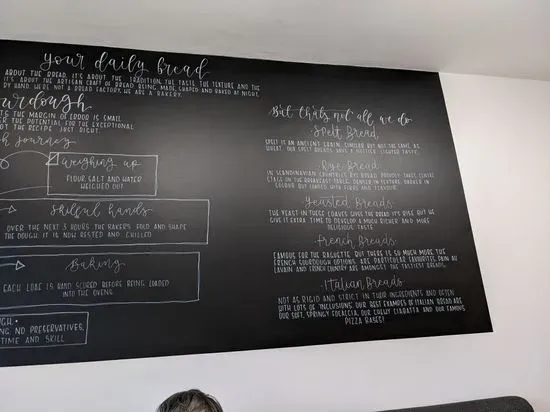 your daily bread
ABOUT THE BREAD. IT'S ABOUT THE TRADITION, THE TASTE, THE TEXTURE AND THE
IT'S ABOUT THE ARTISAN CRAFT OF BREAD BEING MADE, SHAPED AND BAKED AT NIGHT,
BY HAND. WE'RE NOT A BREAD FACTORY, WE ARE A BAKERY.
urdough
THE MARGIN OF ERROR IS SMALL
THE POTENTIAL FOR THE EXCEPTIONAL
THE RECIPE JUST RIGHT.
journey
weighing up
FLOUR, SALT AND WATER
WEIGHED OUT
Skilful hands
OVER THE NEXT 3 HOURS THE BAKERS FOLD AND SHAPE
THE DOUGH. IT IS NOW RESTED AND CHILLED
Baking
EACH LOAF IS HAND SCORED BEFORE BEING LOADED
INTO THE OVENS
NG, NO PRESERVATIVES,
TIME AND SKILL
But that's not all we do
Spelt Bread
SPELT IS AN ANCIENT GRAIN, SIMILAR BUT NOT THE SAME AS
WHEAT. OUR SPELT BREADS HAVE A NUTTIER, LIGHTER TASTE.
Rye Bread
IN SCANDINAVIAN COUNTRIES RYE BREAD PROUDLY TAKES CENTRE
STAGE ON THE BREAKFAST TABLE. DENSER IN TEXTURE, DARKER IN
COLOUR BUT LOADED WITH FIBRE AND FLAVOUR.
Yeasted Breads
THE YEAST IN THESE LOAVES GIVE THE BREAD ITS RISE BUT WE
GIVE IT EXTRA TIME TO DEVELOP A MUCH RICHER AND MORE
DELICIOUS TASTE.
French Breads
FAMOUS FOR THE BAGUETTE, BUT THERE IS SO MUCH MORE. THE
FRENCH SOURDOUGH OPTIONS ARE PARTICULAR FAVOURITES. PAIN AU
LAVAIN AND FRENCH COUNTRY ARE AMONGST THE TASTIEST BREADS.
Italian Breads
NOT AS RIGID AND STRICT IN THEIR INGREDIENTS AND OFTEN
WITH LOTS OF INCLUSIONS. OUR BEST EXAMPLES OF ITALIAN BREAD ARE
OUR SOFT, SPRINGY FOCACCIA, OUR CHEWY CIABATTA AND OUR FAMOUS
PIZZA BASES!